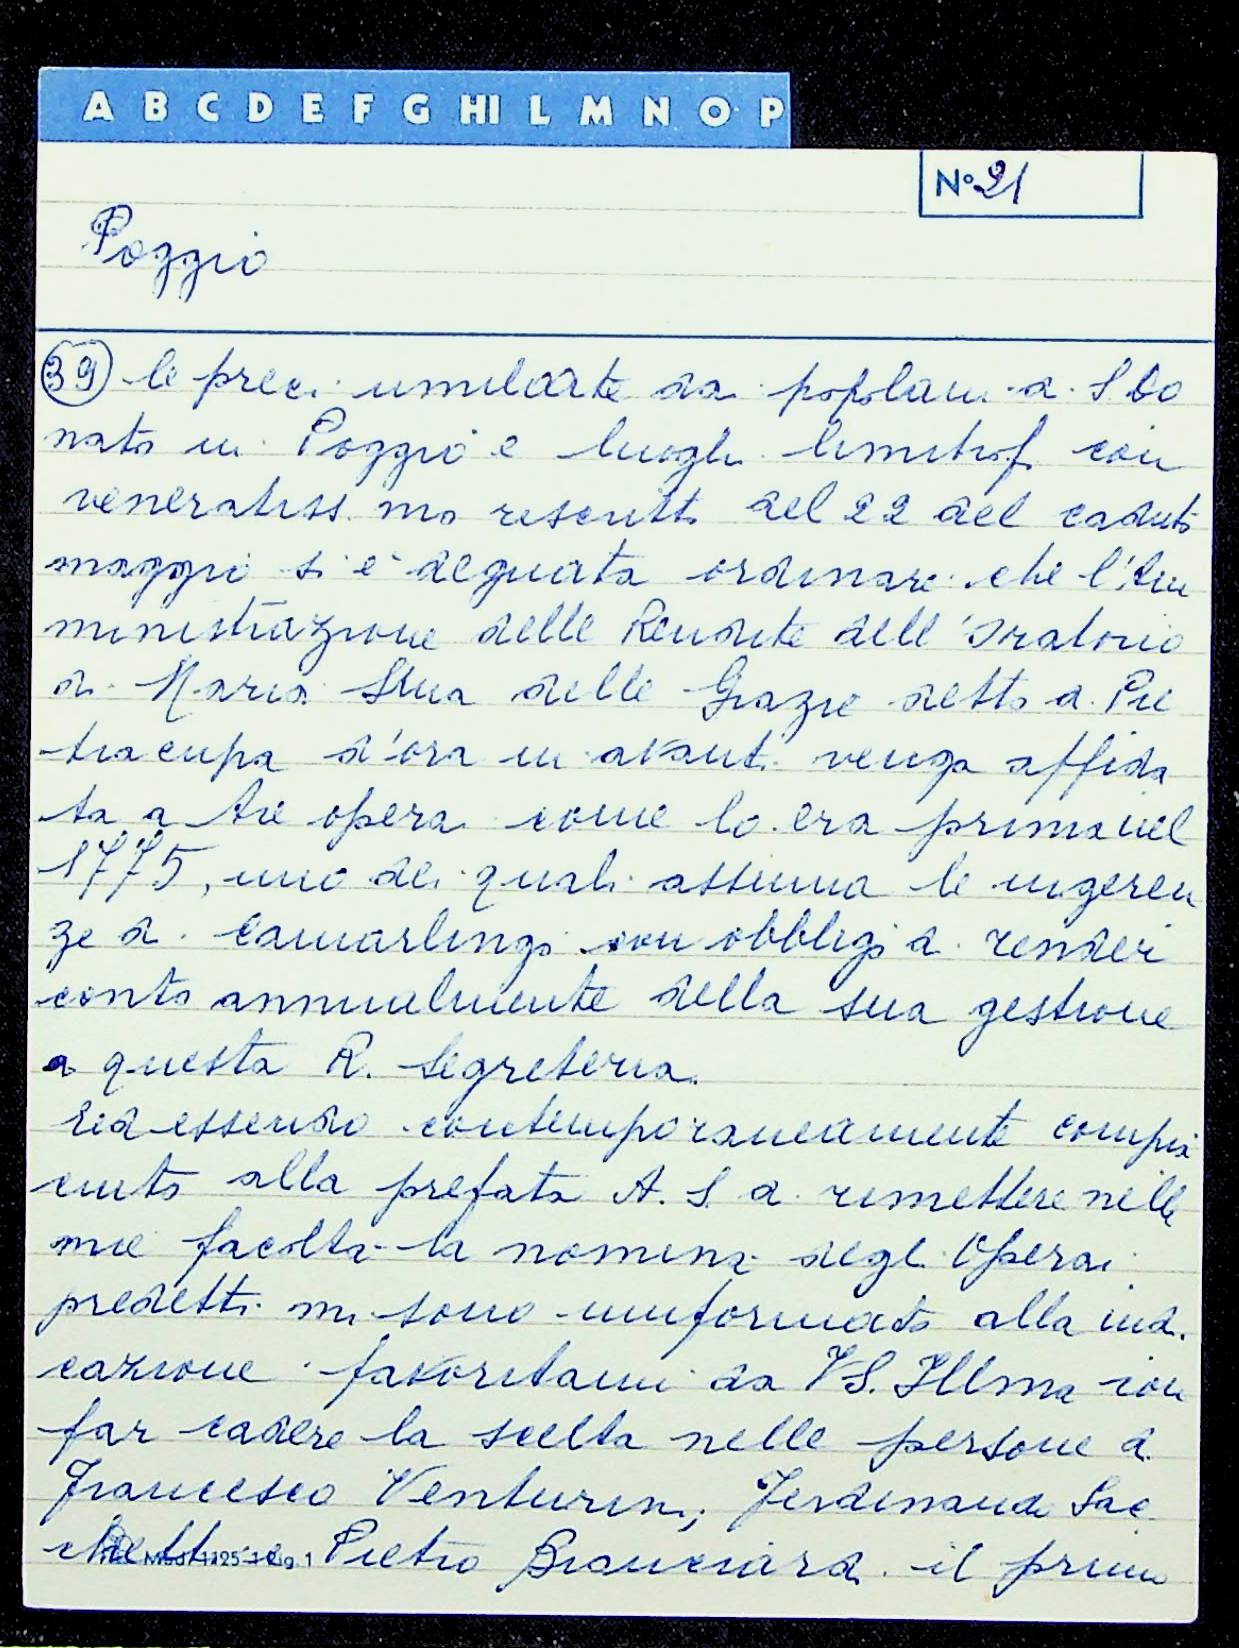 A B C D E F G HI L M N O P
N° 21
Poggio
39 le preci umiliate da popolani di S Do
nato in Poggio e luoghi limitrofi con
veneratiss mo rescritto del 22 del caduto
maggio si è degnata ordinare che l'Am
ministrazione delle Rendite dell'Oratorio
di Maria SSma delle Grazie detto di Pie
tracupa d'ora in avanti venga affida
ta a tre operai come lo era prima nel
1775, uno dei quali assuma le ingeren
ze di camarlingo con obbligo di render
conto annualmente della sua gestione
a questa R. Segreteria.
Ed essendo contemporaneamente compia
ciuto alla prefata A. S. di rimettere nelle
mie facoltà la nomina degli Operai
predetti mi sono uniformato alla indi
cazione favoritami da VS. Illma con
far cadere la scelta nelle persone di
Francesco Venturini, Ferdinando Sac
chetti e Pietro Bianciardi il primo